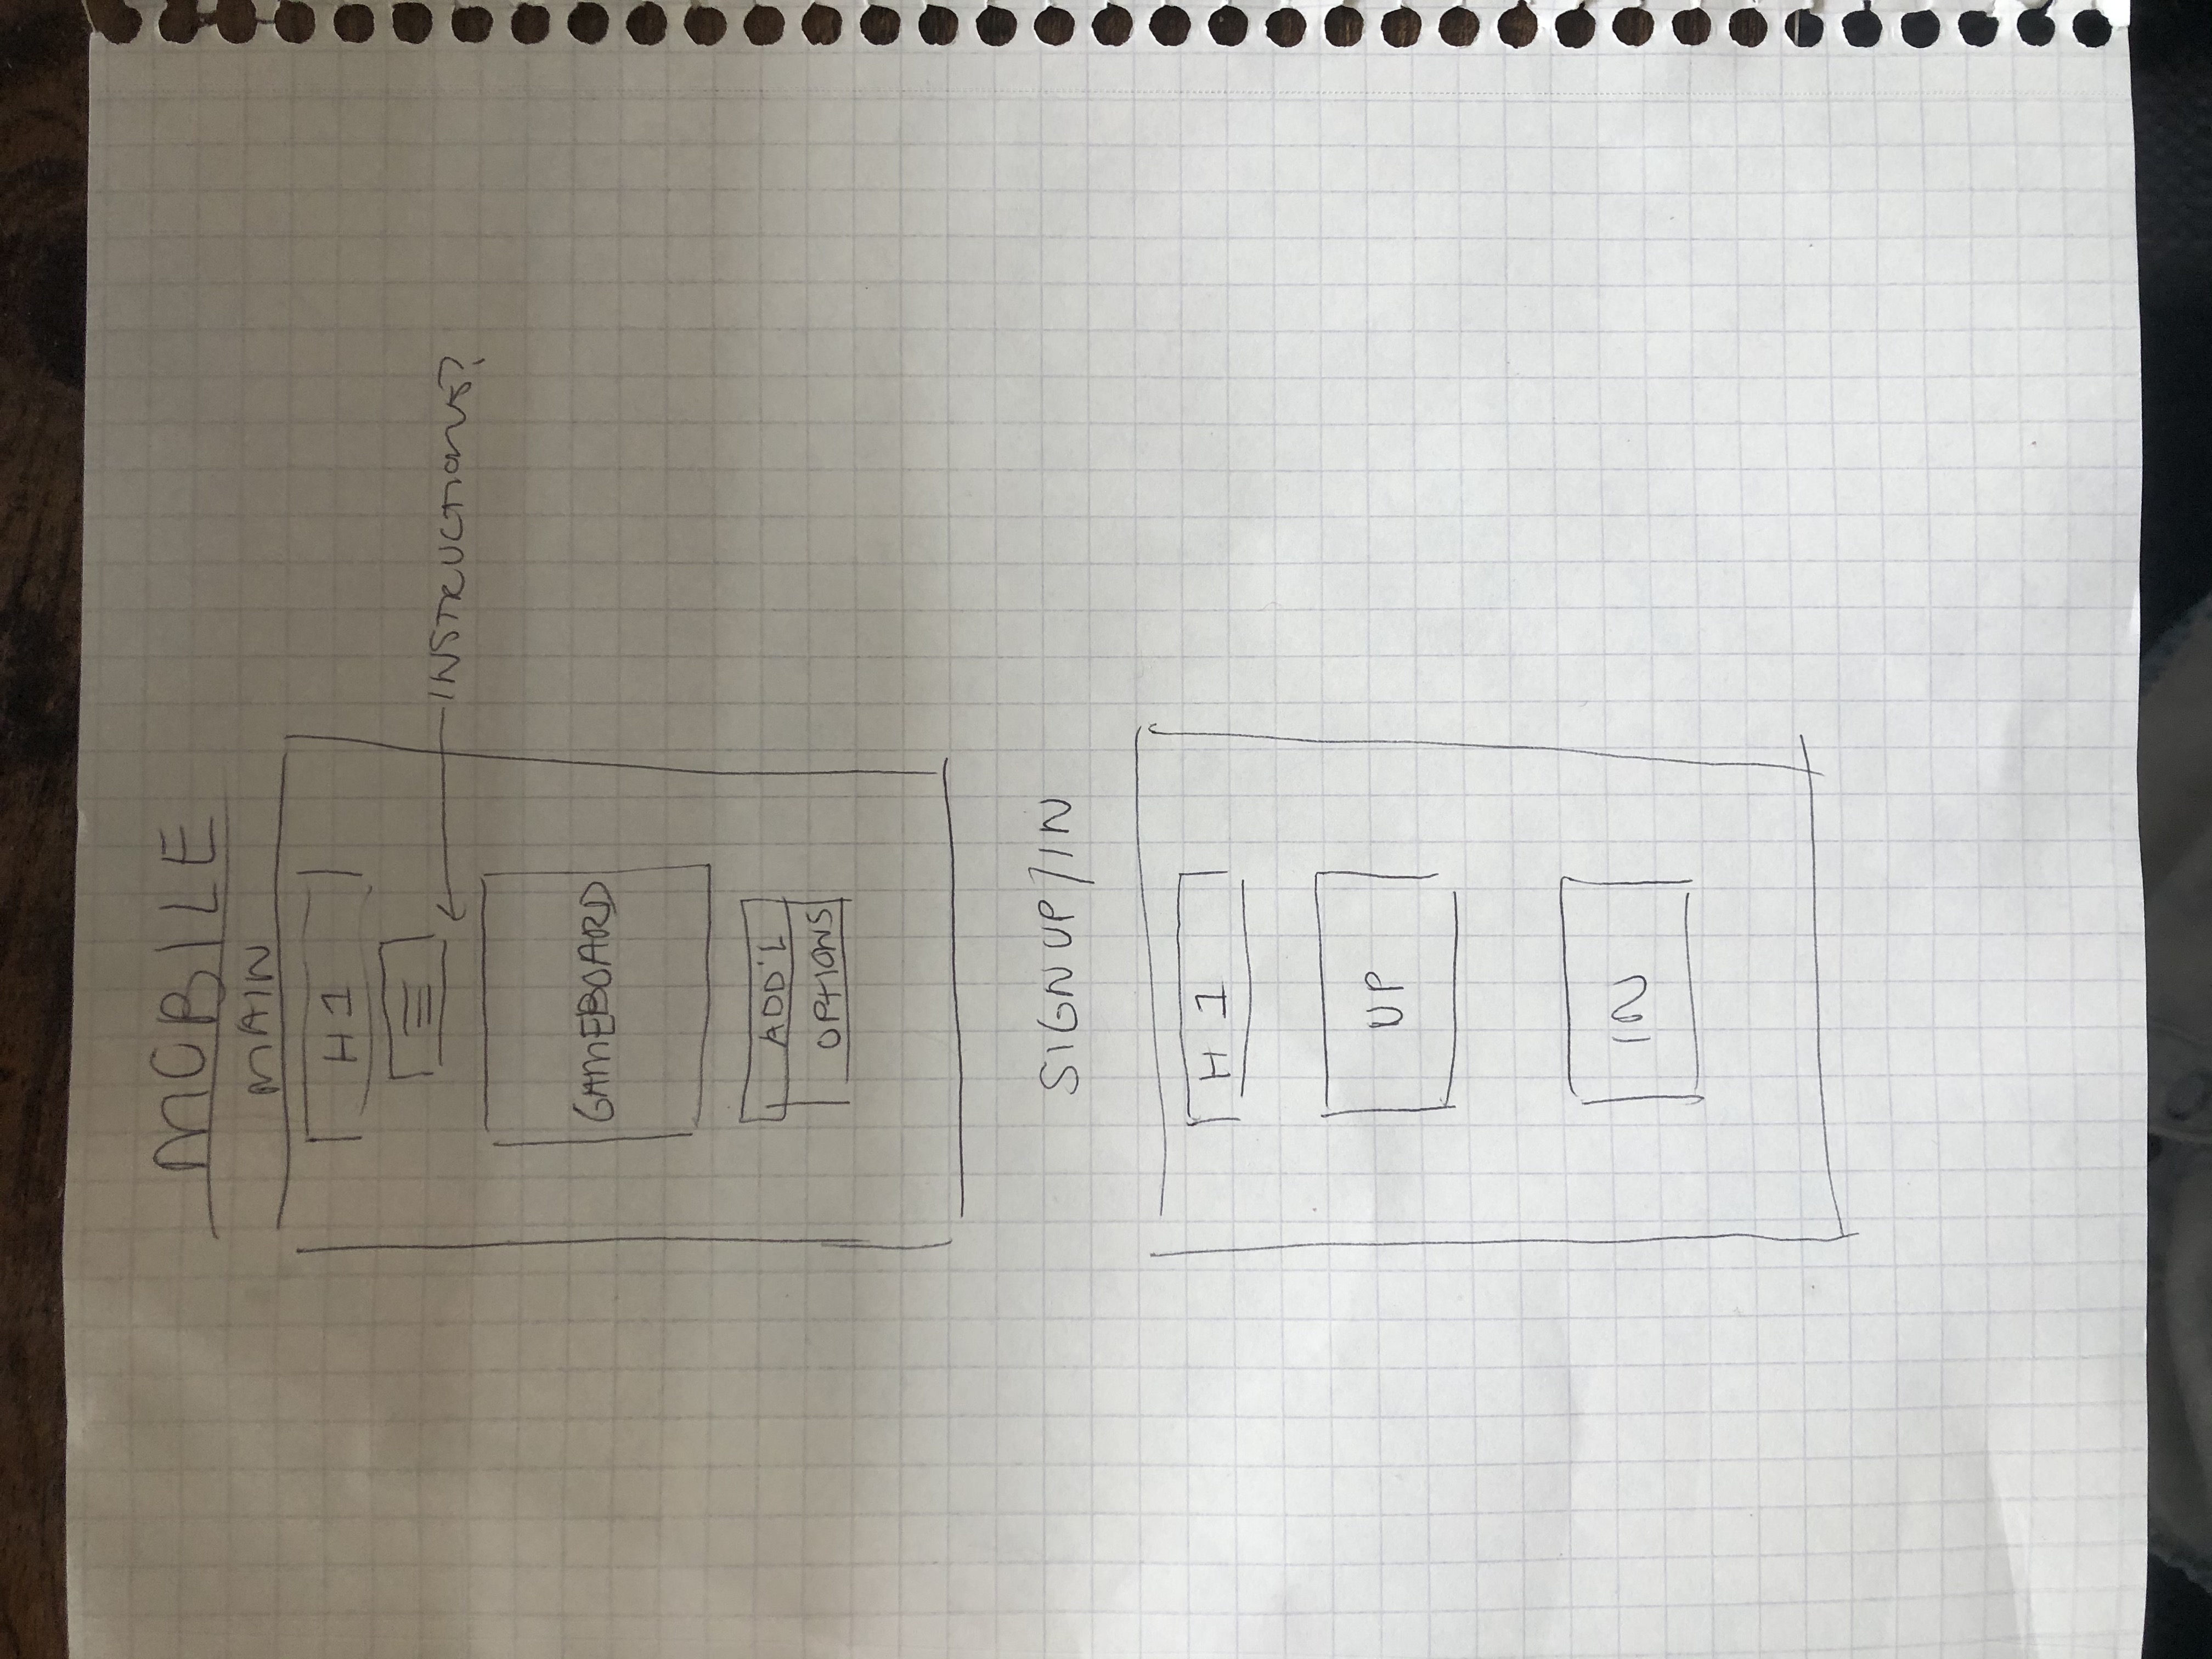 MOBILE
MAIN
H1
INSTRUCTIONS?
GAMEBOARD
ADD'L
OPTIONS
SIGN UP/IN
H1
UP
IN